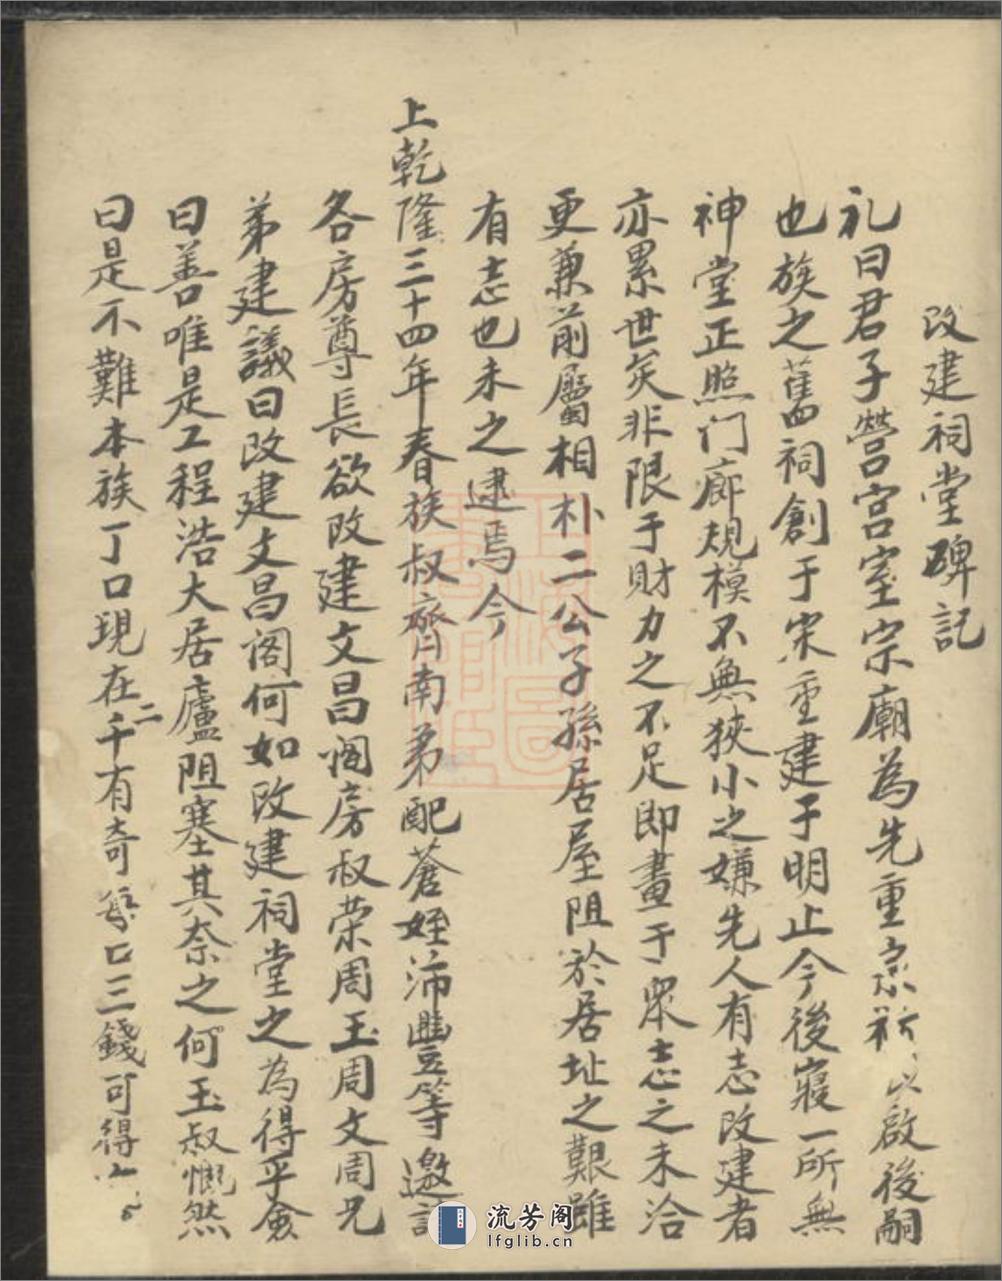 改建祠堂碑記
礼曰君子營宮室宗廟為先重宗祊以啟後嗣
也族之舊祠創于宋重建于明止今後寢一所無
神堂正照门廊規模不無狹小之嫌先人有志改建者
亦累世矣非限于財力之不足即畫于眾志之未洽
更兼前屬相朴二公子孫居屋阻於居址之艱雖
有志也未之逮焉今
上乾隆三十四年春族叔齊南弟配蒼姪沛豐等邀請
各房尊長欲改建文昌阁房叔荣周玉周文周兄
弟建議曰改建文昌阁何如改建祠堂之為得乎僉
曰善唯是工程浩大居廬阻塞其奈之何玉叔慨然
曰是不難本族丁口現在二千有奇每口三錢可得
流芳阁
lfglib.cn